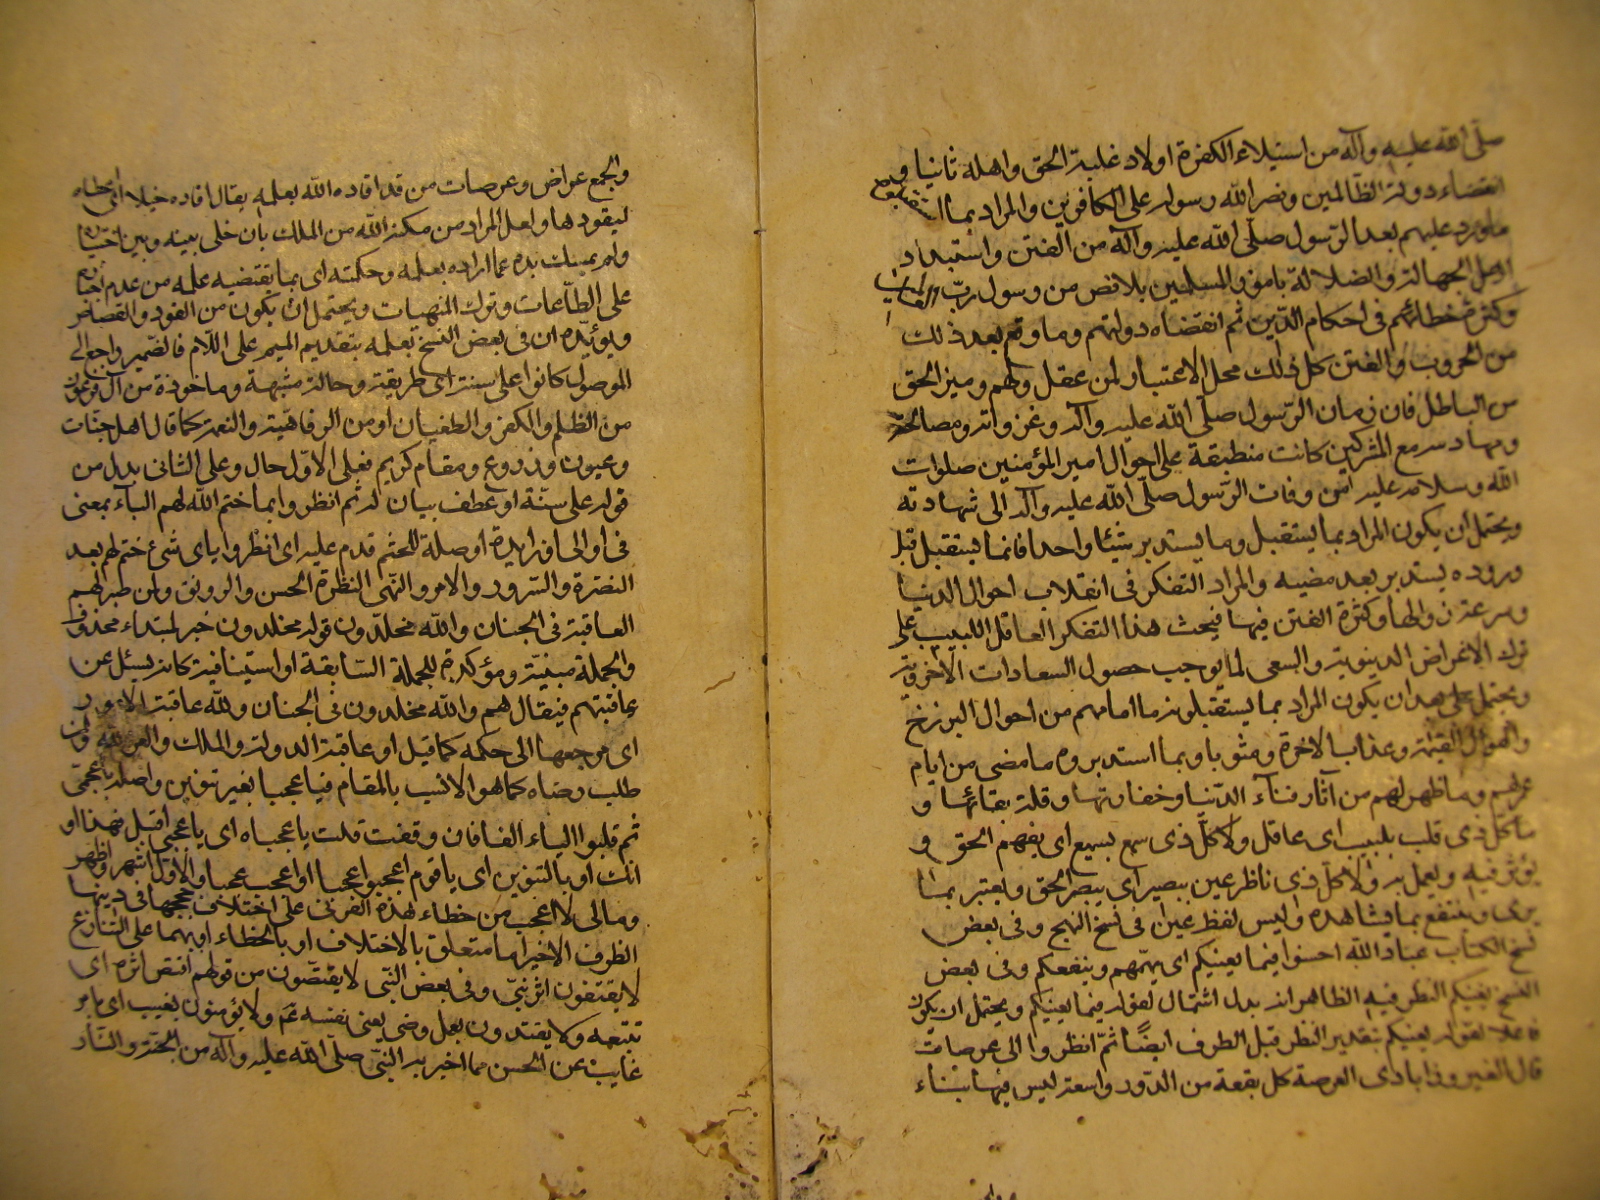 صلّى الله عليه وآله من استيلاء الكفرة اولا وغلبة الحق واهله ثانيا و
انقضاء دولة الظالمين ونصر الله رسوله على الكافرين والمراد بما استقبلوه
ما ورد عليهم بعد الرسول صلّى الله عليه وآله من الفتن واستبداد
اهل الجهالة والضلالة بامور المسلمين بلا نص من رسول ربّ العالمين
وكثرة خطائهم في احكام الدّين ثم انقضاء دولتهم وما وقع بعد ذلك
من الحروب والفتن كل ذلك محل الاعتبار لمن عقل وفهم وميز الحق
من الباطل فان زمان الرّسول صلّى الله عليه وآله وغزواته ومصالحته
ومهادنته مع المشركين كانت منطبقة على احوال امير المؤمنين صلوات
الله وسلامه عليه من وفات الرّسول صلّى الله عليه وآله الى شهادته
ويحتمل ان يكون المراد بما يستقبل وما يستدبر شيئا واحدا فانما يستقبل قبل
وروده يستدبر بعد مضيه والمراد التفكر في انقلاب احوال الدنيا
وسرعة زوالها وكثرة الفتن فيها فيحث هذا التفكر العاقل اللبيب على
ترك الاغراض الدينوية والسعى لما يوجب حصول السعادات الاخروية
ويحتمل على بعد ان يكون المراد بما يستقبلونه ما امامهم من احوال البرزخ
واهوال القيمة وعذاب الاخرة ومثوباتها وبما استدبروه ما مضى من ايام
عمرهم وما ظهر لهم من آثار فناء الدّنيا وحقارتها وقلة بقائها و
ما كل ذى قلب بلبيب اى عاقل ولا كلّ ذى سمع بسميع اى يفهم الحق و
يؤثر فيه ويعمل به ولا كل ذى ناظر عين ببصير اى يبصر الحق ويعتبر بما
يرى وينتفع بما يشاهده وليس لفظ عين في نسخ النهج وفى بعض
نسخ الكتاب عباد الله احسنوا فيما يعنيكم اى يهمّهم وينفعكم وفى بعض
النسخ يعنيكم النظر فيه الظاهر انه بدل اشتمال لقوله فيما يعنيكم ويحتمل ان يكون
فاعلا لقوله يعنيكم بتقدير النظر قبل الظرف ايضًا ثمّ انظروا الى عرصات
قال الفيروزابادى العرصة كل بقعة من الدّور واسعة ليس فيها بناء
والجمع عراض وعرصات من قد اقاده الله بعلمه يقال اقاده خيلا اى اعطاه
ليقودها ولعل المراد من مكنه الله من الملك بان خلى بينه وبين اختياره
ولم يمسك يده عما اراده بعلمه وحكمته اى بما يقتضيه علمه من عدم اجبارهم
على الطّاعات وترك المنهيات ويحتمل ان يكون من القود والقصاص
ويؤيّده ان فى بعض النسخ بعلمه بتقديم الميم على اللّام فالضمير راجع الى
الموصول كانوا على سنة اى طريقة وحالة مشبهة وماخوذة من آل فرعون
من الظلم والكفر والطغيان او من الرفاهية والنعمة كما قال اهل جنّات
وعيون وزروع ومقام كريم فعلى الاوّل حال وعلى الثانى بدل من
قوله على سنّة او عطف بيان له ثم انظروا بما ختم الله لهم الباء بمعنى
فى او الى او زايدة او صلة للختم قدم عليه اى انظروا باى شىء ختم لهم بعد
النضرة والسّرور والامر والنّهى النظرة الحسن والرونق ولمن صبر لهم
العاقبة فى الجنان والله مخلّدون قوله مخلدون خبر لمبتداء محذوف
والجملة مبنيّة ومؤكدة للجملة السّابقة او استينافية كانه يسئل عن
عاقبتهم فيقال هم والله مخلدون فى الجنان ولله عاقبة الامور
اى مرجعها الى حكمه كما قيل او عاقبة الدولة والملك والعز لله ولمن
طلب رضاه كما هو الانسب بالمقام فيا عجبا بغير تنوين واصله يا عجبى
ثم قلبوا الياء الفا فان وقفت قلت يا عجباه اى يا عجبى اقبل فهذا او
انك او بالتنوين اى يا قوم اعجبوا عجبا او اعجب عجبا والاول اشهر واظهر
ومالى لا اعجب من خطاء هذه الفرق على اختلاف حججها فى دينها
الظرف الاخير اما متعلق بالاختلاف او بالخطاء او بهما على التنازع
لا يقتفون اثر نبىّ وفى بعض النسخ لا يقتصّون من قولهم اقتص اثره اى
تتبعه ولا يقتدون بعمل وصى يعنى نفسه عم ولا يؤمنون بغيب اى بامر
غايب عن الحسن مما اخبر به النبّى صلّى الله عليه وآله من الجنّة والنّار